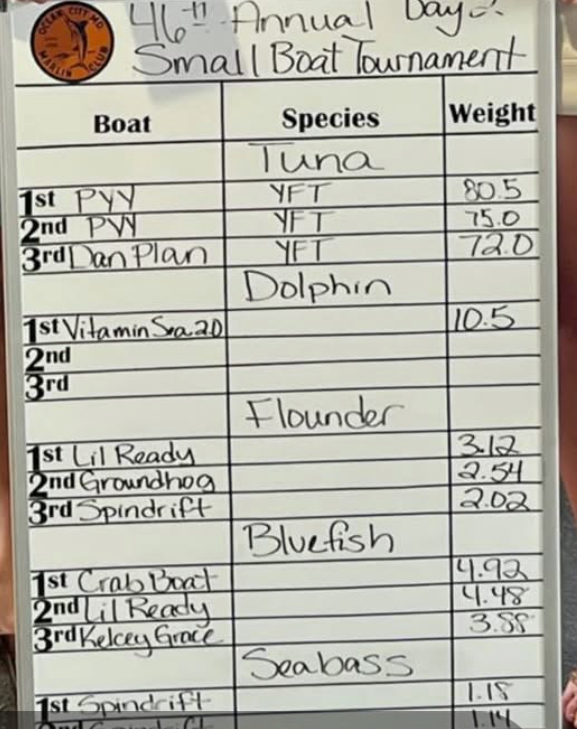 OCEAN CITY MD
MARLIN CLUB
46th Annual Day 2
Small Boat Tournament
Boat Species Weight
Tuna
1st PYY YFT 80.5
2nd PYY YFT 75.0
3rd Dan Plan YFT 72.0
Dolphin
1st Vitamin Sea 2.0 10.5
2nd
3rd
Flounder
1st Lil Ready 3.12
2nd Groundhog 2.54
3rd Spindrift 2.02
Bluefish
1st Crab Boat 4.92
2nd Lil Ready 4.48
3rd Kelcey Grace 3.88
Seabass
1st Spindrift 1.18
2nd Spindrift 1.14